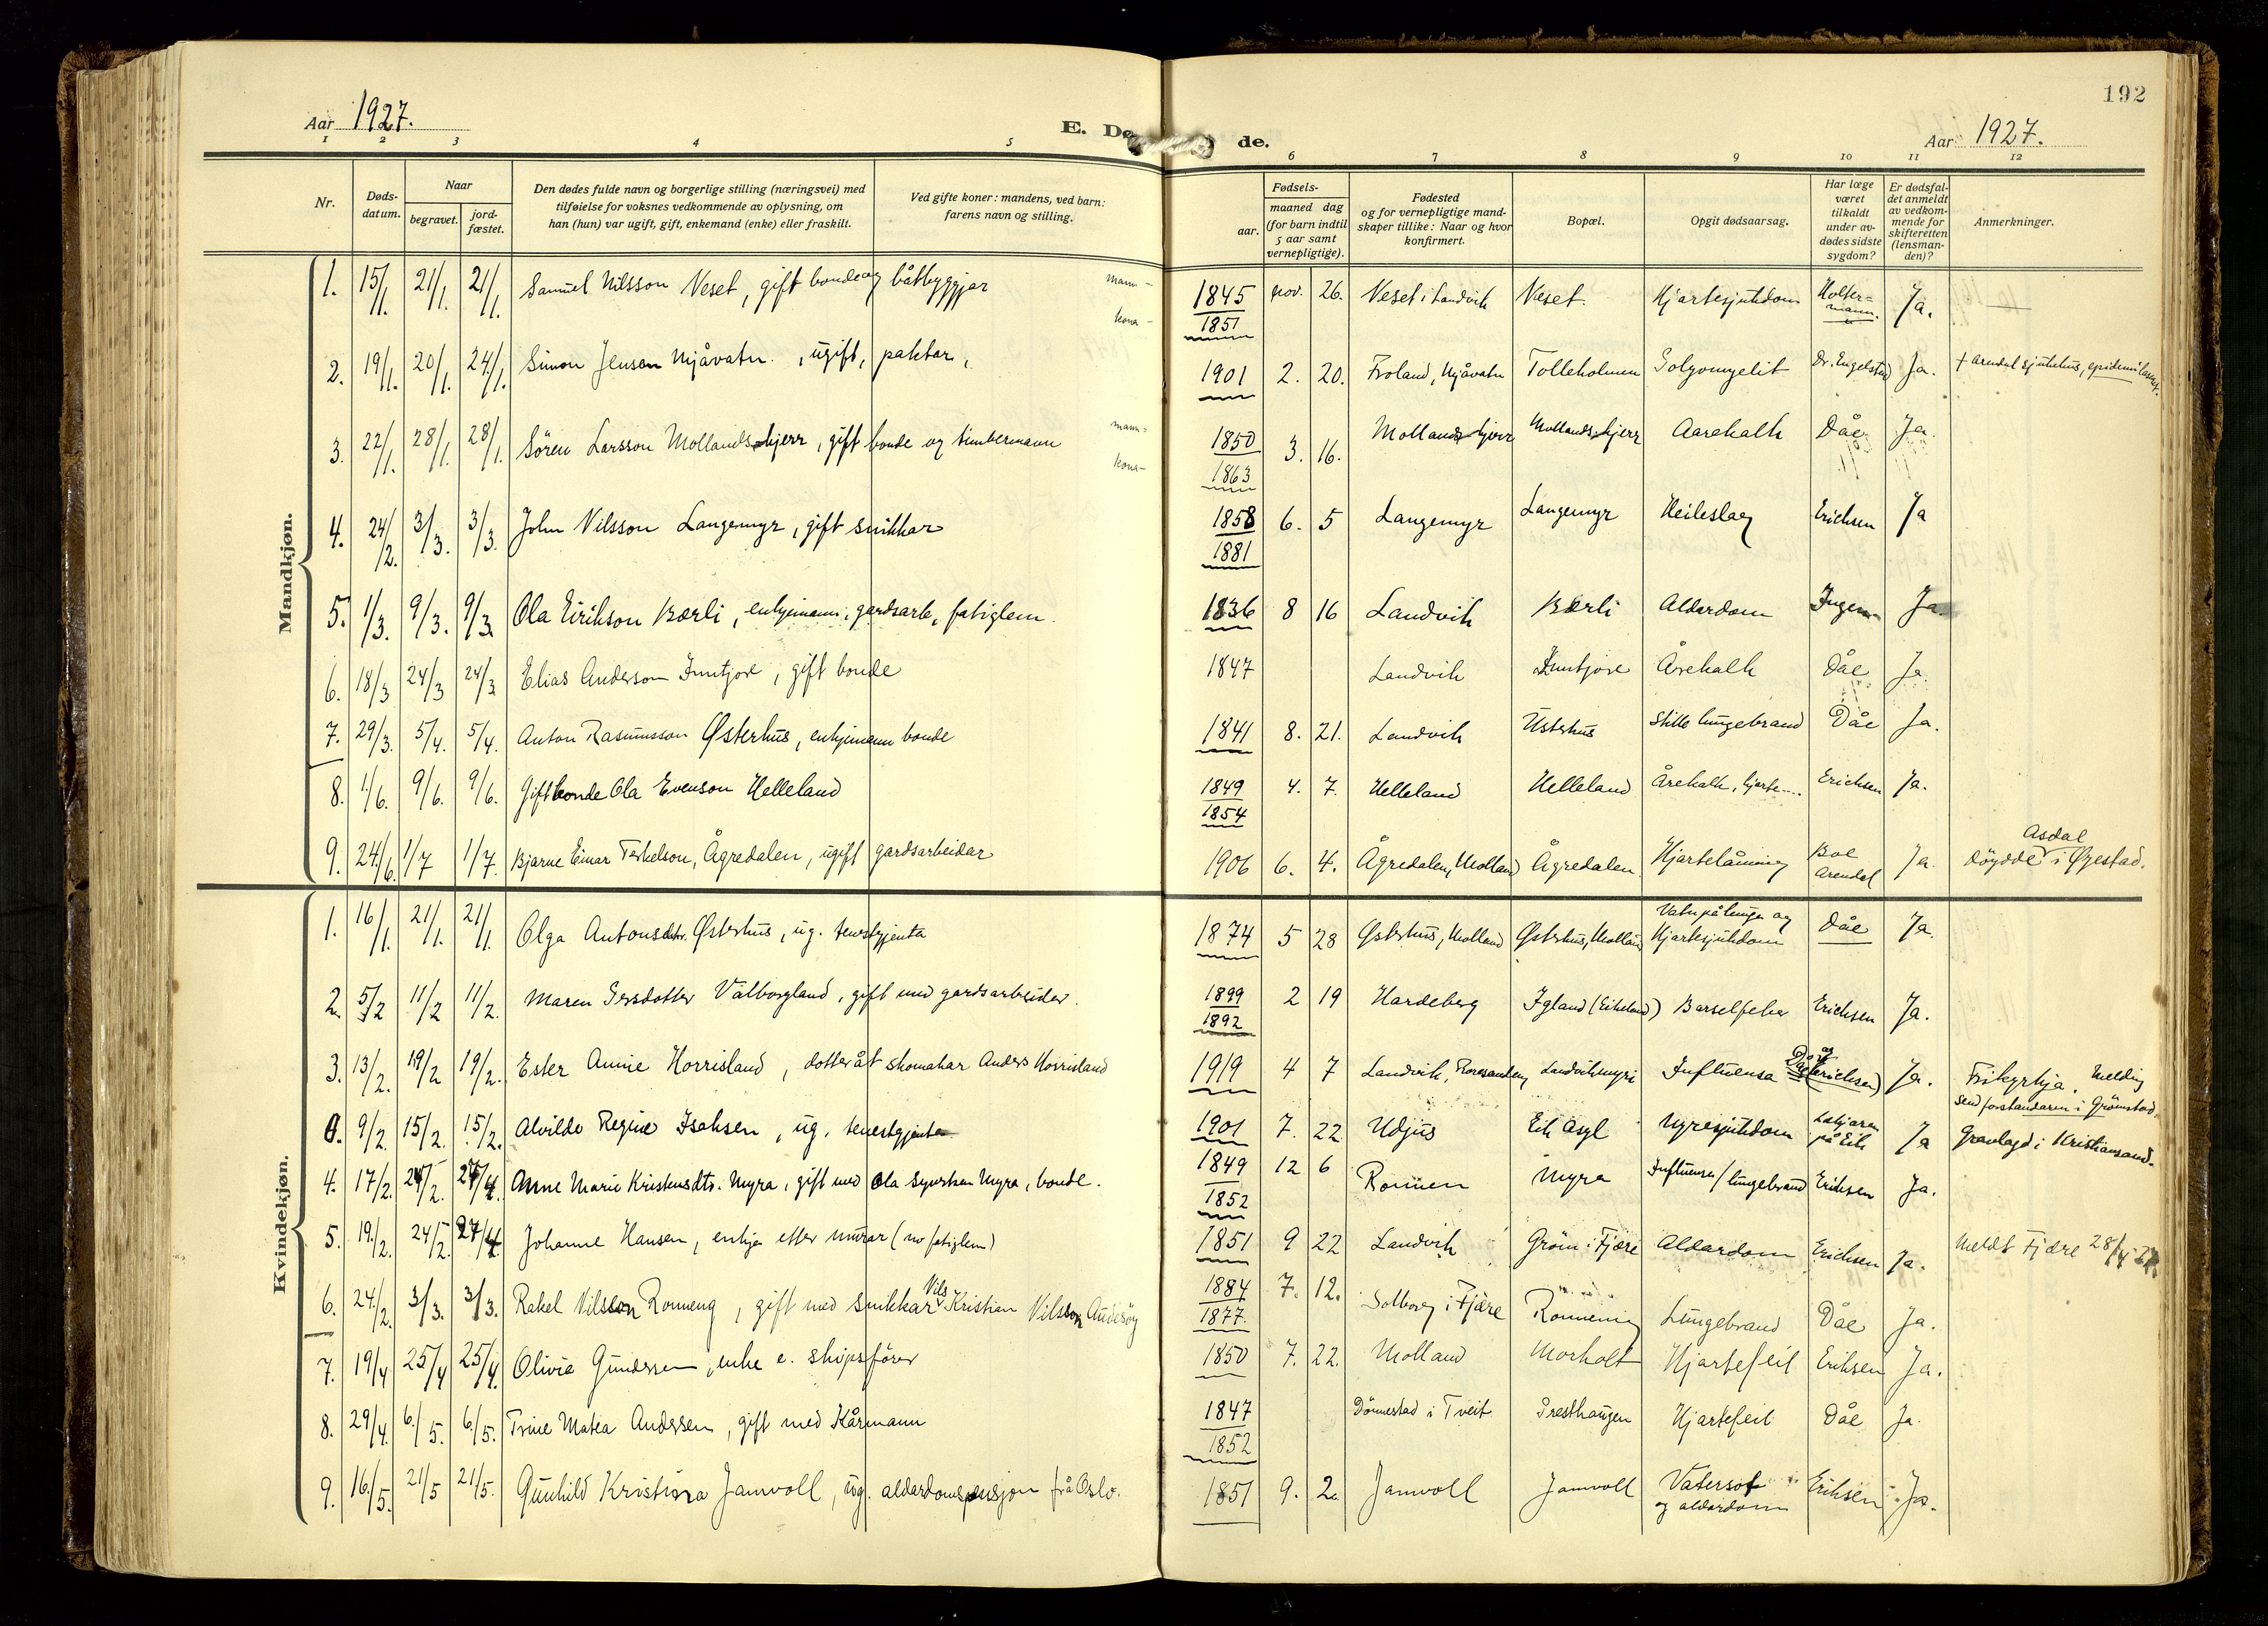 192
Aar 1927.
E. Dø de.
Aar 1927.
1 2 3 4 5 6 7 8 9 10 11 12
Nr.
Døds-datum.
Naar
begravet.
jord-fæstet.
Den dødes fulde navn og borgerlige stilling (næringsvei) med
tilføielse for voksnes vedkommende av oplysning, om
han (hun) var ugift, gift, enkemand (enke) eller fraskilt.
Ved gifte koner: mandens, ved barn:
farens navn og stilling.
Fødsels-
aar.
maaned dag
(for barn indtil
5 aar samt
vernepligtige).
Fødested
og for vernepligtige mand-
skaper tillike: Naar og hvor
konfirmert.
Bopæl.
Opgit dødsaarsag.
Har læge
været
tilkaldt
under av-
dødes sidste
sygdom?
Er dødsfal-
det anmeldt
av vedkom-
mende for
skifteretten
(lensman-
den)?
Anmerkninger.
Mandkjøn.
1. 15/1. 21/1. 21/1. Samuel Nilsson Veset, gift bonde og båtbyggjar mann- 1845 nov. 26. Veset i Landvik Veset Hjartesjukdom Holtermann. Ja. —
kona- 1851
2. 19/1. 20/1. 24/1. Simon Jenson Mjåvatn, ugift, paktar, 1901 2. 20. Froland, Mjåvatn Tolleholmen Polyomyelit Dr. Engelstad Ja. † Arendal sjukehus, epidemilasaret.
3. 22/1. 28/1. 28/1. Sören Larsson Mollandskjerr, gift bonde og timbermann mann- 1850 3. 16. Mollandskjerr Mollandskjerr Aarekalk Dåe Ja.
kona- 1863
4. 24/2. 3/3. 3/3. John Nilsson Langemyr, gift snikkar 1858 6. 5 Langemyr Langemyr Heileslag Erichsen Ja
1881
5. 1/3. 9/3. 9/3. Ola Eirikson Bærli, enkjemann, gardsarb., fatiglem. 1836 8 16 Landvik Bærli Alderdom Ingen Ja.
6. 18/3 24/3 24/3 Elias Anderson Inntjore, gift bonde 1847 Landvik Inntjore Årekalk Dåe Ja
7. 29/3. 5/4. 5/4. Anton Rasmusson Østerhus, enkjemann bonde 1841 8. 21. Landvik Østerhus Stille lungebrand Dåe Ja.
8. 1/6. 9/6. 9/6. Gift bonde Ola Evenson Helleland 1849 4. 7. Helleland Helleland Årekalk, hjarte-... Erichsen Ja.
1854
9. 24/6. 1/7 1/7. Bjarne Einar Terkelson, Ågredalen, ugift gardsarbeidar 1906 6. 4. Ågredalen, Molland Ågredalen Hjartelåming Boe Arendal Ja. döydde i Asdal Øyestad.
Kvindekjøn.
1. 16/1. 21/1. 21/1. Olga Antonsdtr. Østerhus, ug. tenestgjenta 1874 5 28 Østerhus, Molland Østerhus, Molland Vatn på lunga og Hjartesjukdom Dåe Ja.
2. 5/2 11/2 11/2. Maren Persdotter Valborgland, gift med gardsarbeider. 1899 2 19 Hardeberg Igland (Eikeland) Barselfeber Erichsen Ja.
1892
3. 13/2. 19/2 19/2. Ester Annie Horrisland, dotter åt skomakar Anders Horrisland 1919 4 7 Landvik, Roresanden Landviksmyri Influensa Dåe og (Erichsen) Ja. Frikyrkja. Melding
send forstandaren i Grimstad.
0. 9/2. 15/2. 15/2. Alvilde Regine Isaksen, ug. tenestgjenta 1901 7. 22 Udjus Eik Asyl Nyresjukdom Lækjaren på Eik Ja Gravlagd i Kristiansand.
4. 17/2. 24/2. 27/4. Anne Marie Kristensdtr. Myra, gift med Ola Syvertsen Myra, bonde. 1849 12 6 Ronnen Myra Influensa/lungebrand Erichsen Ja.
1852
5. 19/2. 24/2. 27/4 Johanne Hansen, enkja etter murar (no fatiglem) 1851 9 22 Landvik Gröm i Fjære Aldardom Erichsen Ja. Meldt Fjære 28/4 27.
6. 24/2. 3/3. 3/3. Rakel Nilsson Ronneng, gift med snikkar Nils Kristian Nilsson Audsöy 1884 7. 12. Solborg i Fjære Ronnenig Lungebrand Dåe Ja.
1877.
7. 19/4 25/4 25/4. Olivia Gundersen, enke e. skipsförer 1850 7. 22. Molland Morholt Hjartefeil Eriksen Ja.
8. 29/4. 6/5. 6/5. Trine Matea Andersen, gift med Kårmann 1847 Dönnestad i Tveit Presthaugen Hjartefeil Dåe Ja.
1852
9. 16/5. 21/5 21/5. Gunhild Kristina Jamvoll, ug. aldardomspensjon frå Oslo. 1851 9. 2. Jamvoll Jamvoll Vatersot og aldardom Eriksen Ja.